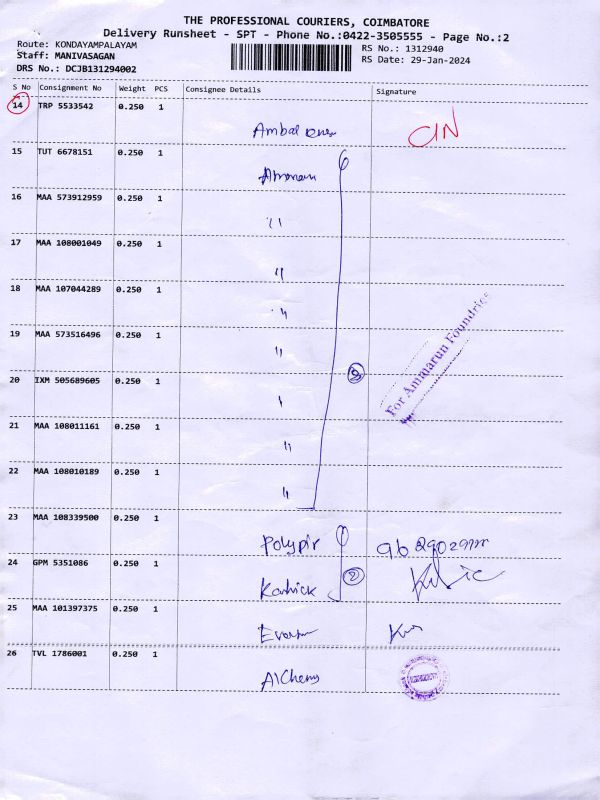 THE PROFESSIONAL COURIERS, COIMBATORE
Delivery Runsheet - SPT - Phone No.:0422-3505555 - Page No.:2
Route: KONDAYAMPALAYAM
Staff: MANIVASAGAN
DRS No.: DCJB131294002
RS No.: 1312940
RS Date: 29-Jan-2024
S No Consignment No Weight PCS Consignee Details Signature
14 TRP 5533542 0.250 1
Ambal
15 TUT 6678151 0.250 1
16 MAA 573912959 0.250 1
"
17 MAA 108001049 0.250 1
"
18 MAA 107044289 0.250 1
"
19 MAA 573516496 0.250 1
"
For Ammarun Foundries
20 IXM 505689605 0.250 1
"
21 MAA 108011161 0.250 1
"
22 MAA 108010189 0.250 1
"
23 MAA 108339500 0.250 1
24 GPM 5351086 0.250 1
Karthick
25 MAA 101397375 0.250 1
26 TVL 1786001 0.250 1
AlChemy